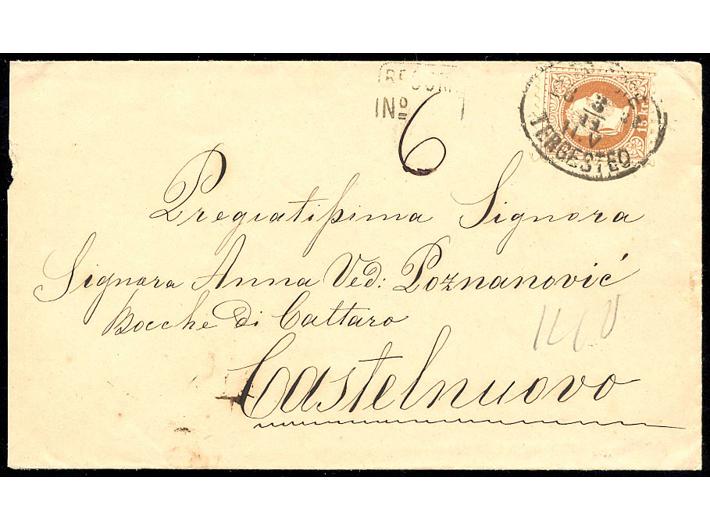 RECOM
No 6
15 kr
3
11
TERGESTEO
Pregiatissima Signora
Signora Anna Ved: Poznanović
Bocche di Cattaro
Castelnuovo